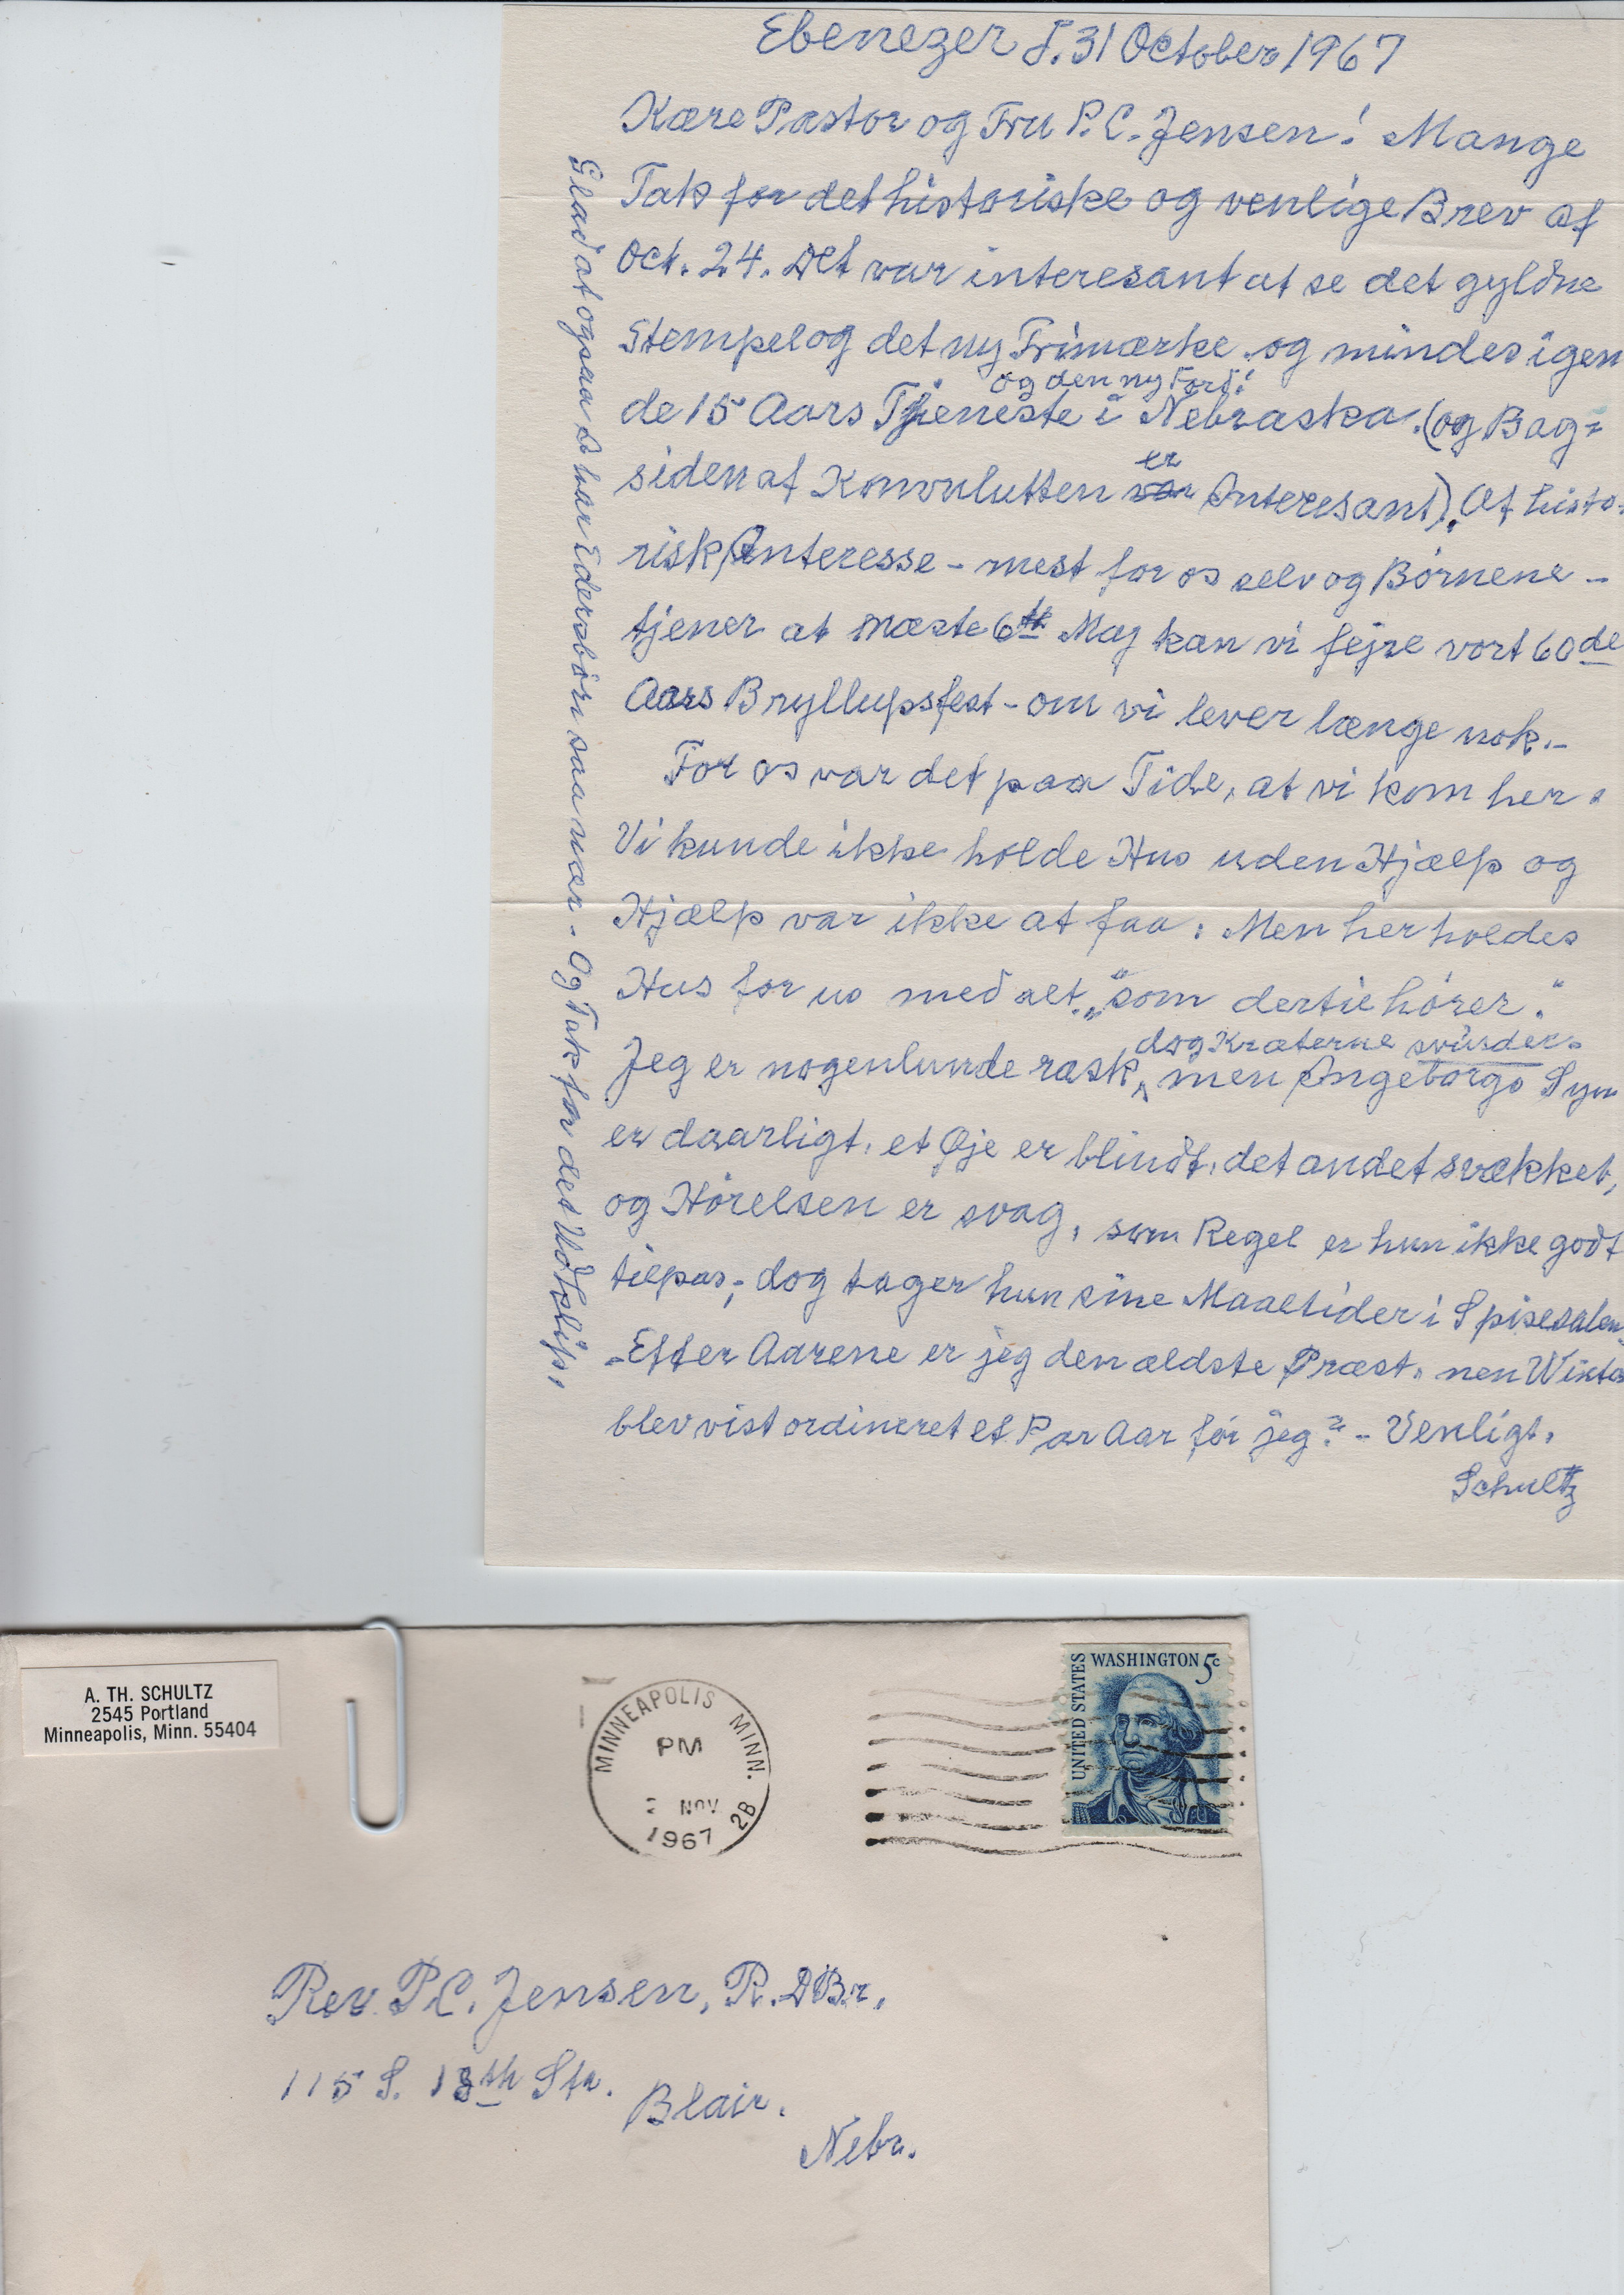 Ebenezer d. 31 October 1967
Kære Pastor og Fru P. C. Jensen! Mange
Tak for det historiske og venlige Brev af
Oct. 24. Det var interesant at se det gyldne
Stempel og det ny Frimærke og mindes igen
og den ny Ford!
de 15 Aars Tjeneste i Nebraska. (og Bag=
er
siden af Konvulutten var Interesant). Af histo-
risk Interesse - mest for os selv og Börnene -
tjener at næste 6th May kan vi fejre vort 60de
Aars Bryllupsfest - om vi lever længe nok. -
For os var det paa Tide, at vi kom her.
Vi kunde ikke holde Hus uden Hjælp og
Hjælp var ikke at faa: Men her holdes
Hus for us med alt „som dertil hörer."
dog Kræterne svinder.
Jeg er nogenlunde rask, men Ingeborgs Syn
er daarligt, et Øje er blindt, det andet svækket,
og Hörelsen er svag, som Regel er hun ikke godt
tilpas; dog tager hun sine Maaltider i Spisesalen -
- Efter Aarene er jeg den ældste Præst, men
blev vist ordineret et Par Aar för jeg? - Venligt,
Schultz
Glad at ogsaa I har Eders börn saa nær. - Og Tak for det Udklip,
A. TH. SCHULTZ
2545 Portland
Minneapolis, Minn. 55404
MINNEAPOLIS MINN.
PM
NOV
1967
2B
UNITED STATES
WASHINGTON 5c
Rev. P. C. Jensen, R. D Br.
115 S. 18th Str.
Blair.
Nebr.